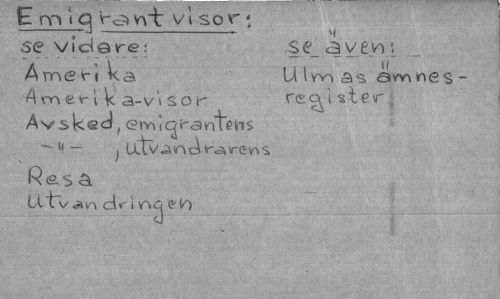 Emigrantvisor:
se vidare:
Amerika
Amerika-visor
Avsked, emigrantens
-"- , utvandrarens
Resa
Utvandringen
se även:
Ulmas ämnes-
register